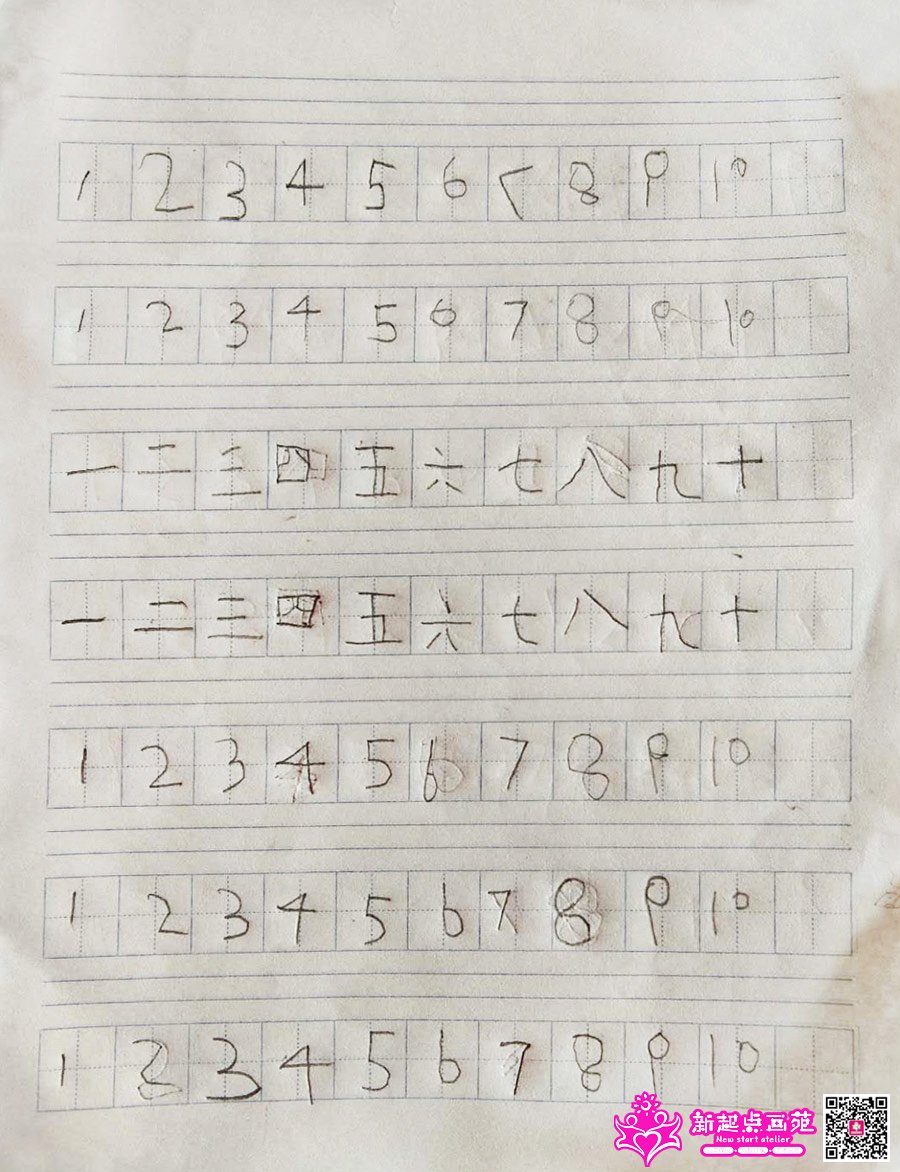 1 2 3 4 5 6 7 8 9 10
1 2 3 4 5 6 7 8 9 10
一 二 三 四 五 六 七 八 九 十
一 二 三 四 五 六 七 八 九 十
1 2 3 4 5 6 7 8 9 10
1 2 3 4 5 6 7 8 9 10
1 2 3 4 5 6 7 8 9 10
新起点画苑
New start atelier